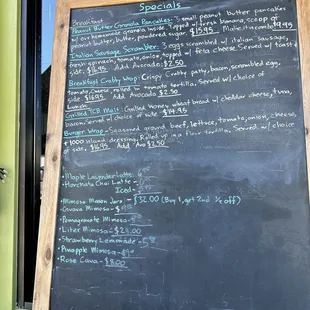 Specials
Breakfast
Peanut Butter Granola Pancakes: 3 small peanut butter pancakes
w/ our homemade granola inside. Topped w/ fresh banana, scoop of
peanut butter, butter, powdered sugar. $15.95 Make it a combo
Italian Sausage Scrambler: 3 eggs scrambled w/ italian sausage,
fresh spinach, tomato, onion, topped w/ feta cheese. Served w/ toast &
side. $16.95 Add Avocado $2.50
Breakfast Crabby Wrap: Crispy Crabby patty, bacon, scrambled egg,
tomato, cheese, rolled in tomato tortilla. Served w/ choice of
side $16.95 Add Avocado $2.50
Lunch
Grilled TCB Melt: Grilled Honey wheat bread w/ cheddar cheese, tuna,
bacon. Served w/ choice of side $14.95
Burger Wrap - Seasoned ground beef, lettuce, tomato, onion, cheese,
+ 1000 island dressing. Rolled up in a flour tortilla. Served w/ choice
of side. $16.95 Add Avo $2.50
• Maple Lavender Latte
• Horchata Chai Latte -
Iced
• Mimosa Mason Jars - $32.00 (Buy 1, get 2nd ½ off)
• Guava Mimosa -
• Pomegranate Mimosa -
• Liter Mimosa - $29.00
• Strawberry Lemonade -
• Pineapple Mimosa -
• Rose Cava - $8.00